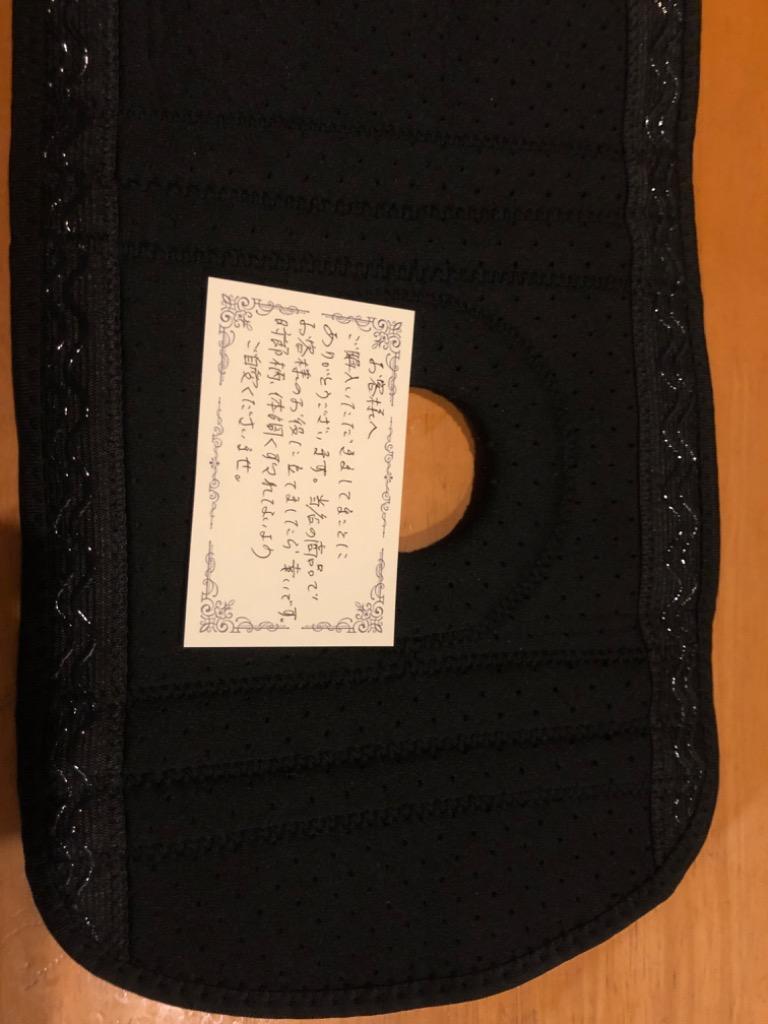 お客様へ
ご購入いただきましてまことに
ありがとうございます。当名の商品で
お客様のお役に立てましたら幸いです。
時節柄、体調くずされないよう
ご自愛くださいませ。